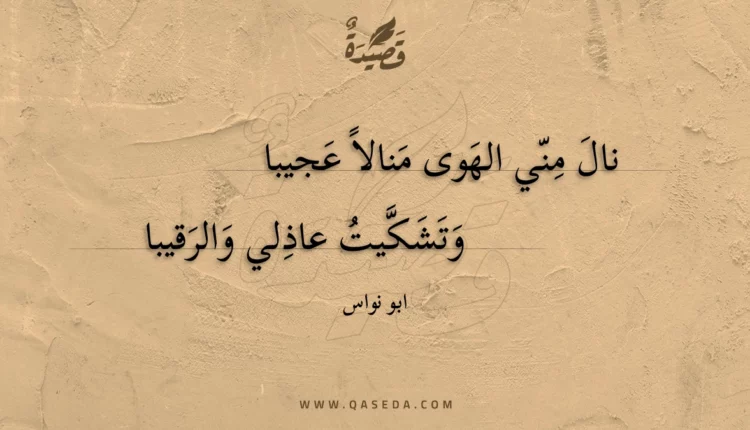 قَصِيْدَةٌ
نالَ مِنّي الهَوى مَنالاً عَجيبا
وَتَشَكَّيتُ عاذِلي وَالرَقيبا
ابو نواس
WWW.QASEDA.COM